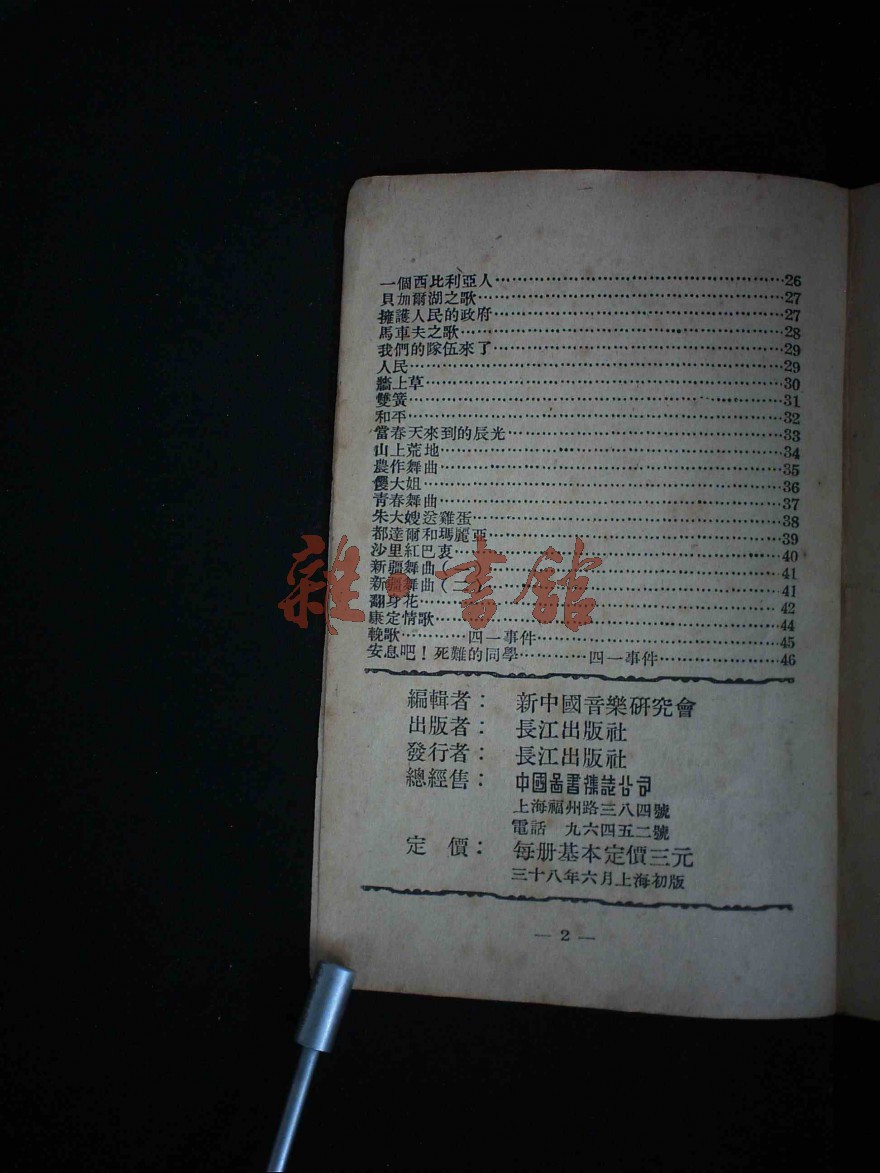 一個西比利亞人……………26
貝加爾湖之歌……………27
擁護人民的政府……………27
馬車夫之歌……………28
我們的隊伍來了……………29
人民……………29
牆上草……………30
雙簧……………31
和平……………32
當春天來到的辰光……………33
山上荒地……………34
農作舞曲……………35
傻大姐……………36
青春舞曲……………37
朱大嫂送雞蛋……………38
都達爾和瑪麗亞……………39
沙里紅巴衷……………40
新疆舞曲(一)……………41
新疆舞曲(二)……………41
翻身花……………42
康定情歌……………44
輓歌…………四一事件……………45
安息吧!死難的同學…………四一事件……………46
編輯者: 新中國音樂研究會
出版者: 長江出版社
發行者: 長江出版社
總經售: 中國圖書雜誌公司
上海福州路三八四號
電話 九六四五二號
定 價: 每册基本定價三元
三十八年六月上海初版
— 2 —
雜·書館